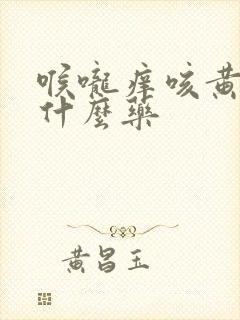 喉嚨痒咳黃
什麼藥
黃昌玉